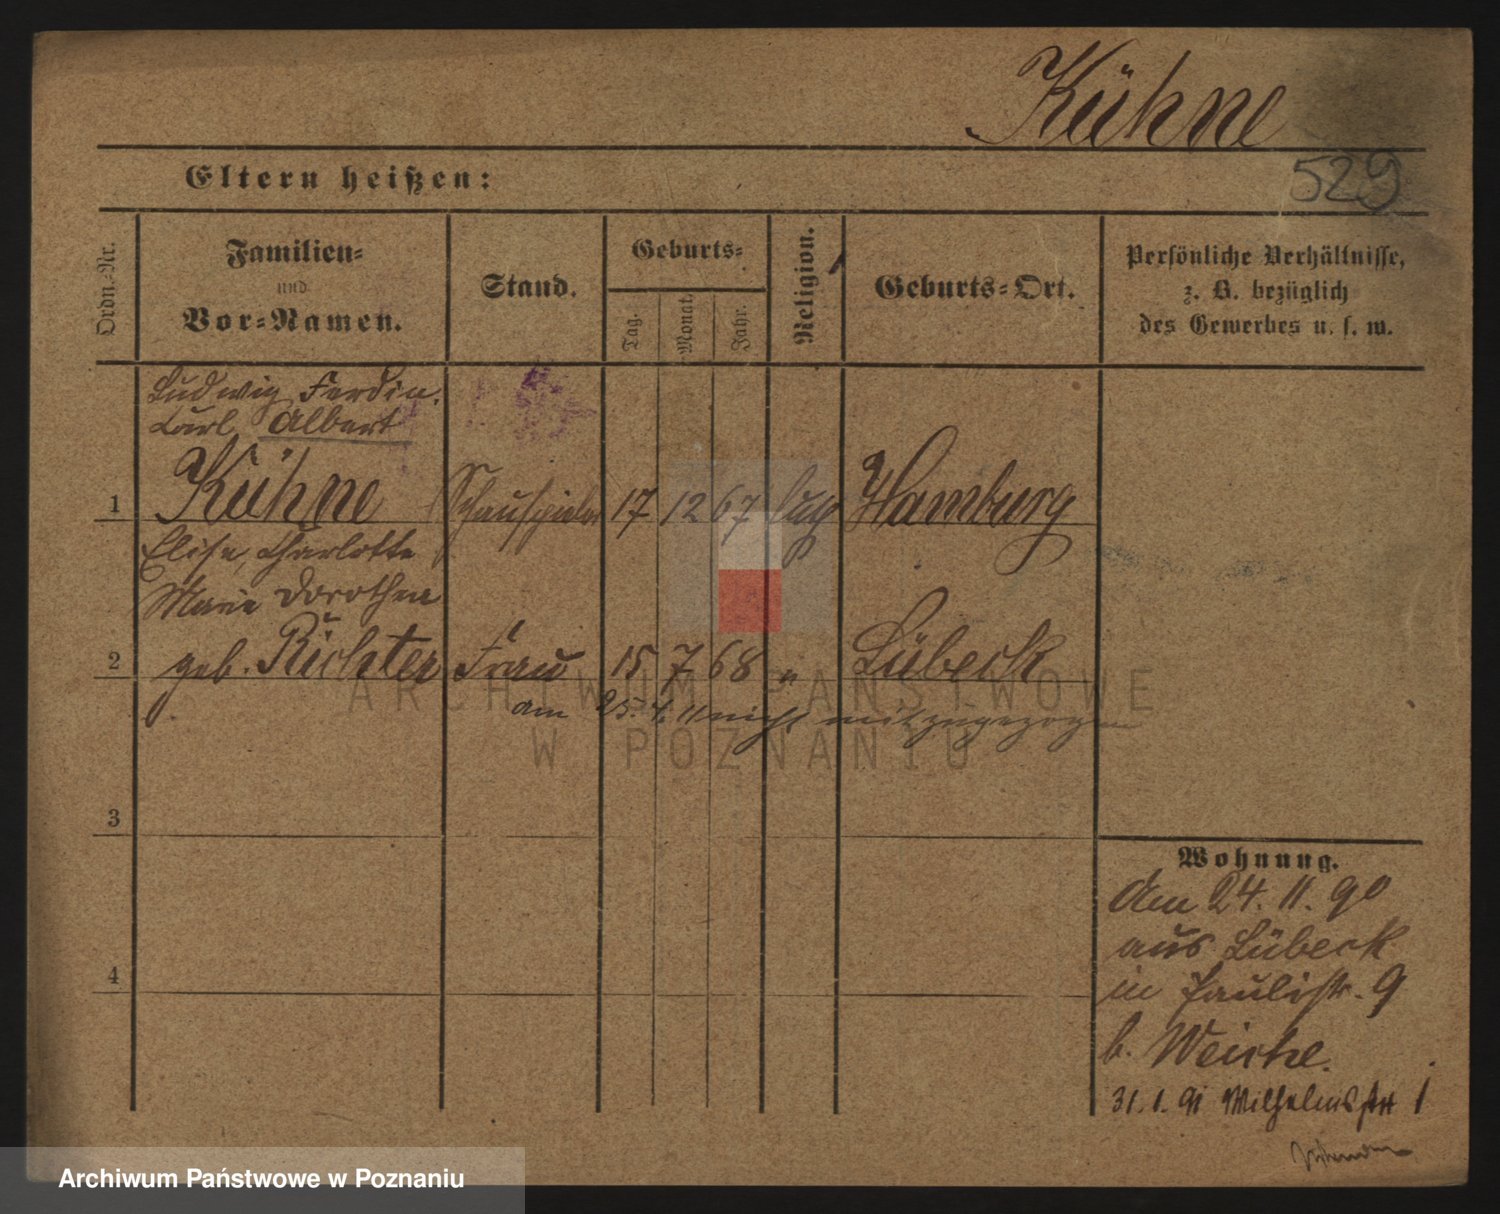 Kühne
529
Eltern heißen:
Ordn.-Nr.
Familien-
und
Vor-Namen.
Stand.
Geburts-
Tag.
Monat.
Jahr.
Religion.
Geburts-Ort.
Persönliche Verhältnisse,
z. B. bezüglich
des Gewerbes u. s. w.
Ludwig Ferdin.
Carl Albert
1 Kühne Schauspieler 17 12 67 Hamburg
Elise, Charlotte
Marie Dorothea
2 geb. Richter Frau 15 7 68 " Lübeck
am 25. nicht mit zugezogen
3
4
Wohnung.
Am 24. 11. 90
aus Lübeck
in Paulistr. 9
b. Weiche.
31. 1. 91 Wilhelmsstr 1
ARCHIWUM PAŃSTWOWE
W POZNANIU
Archiwum Państwowe w Poznaniu